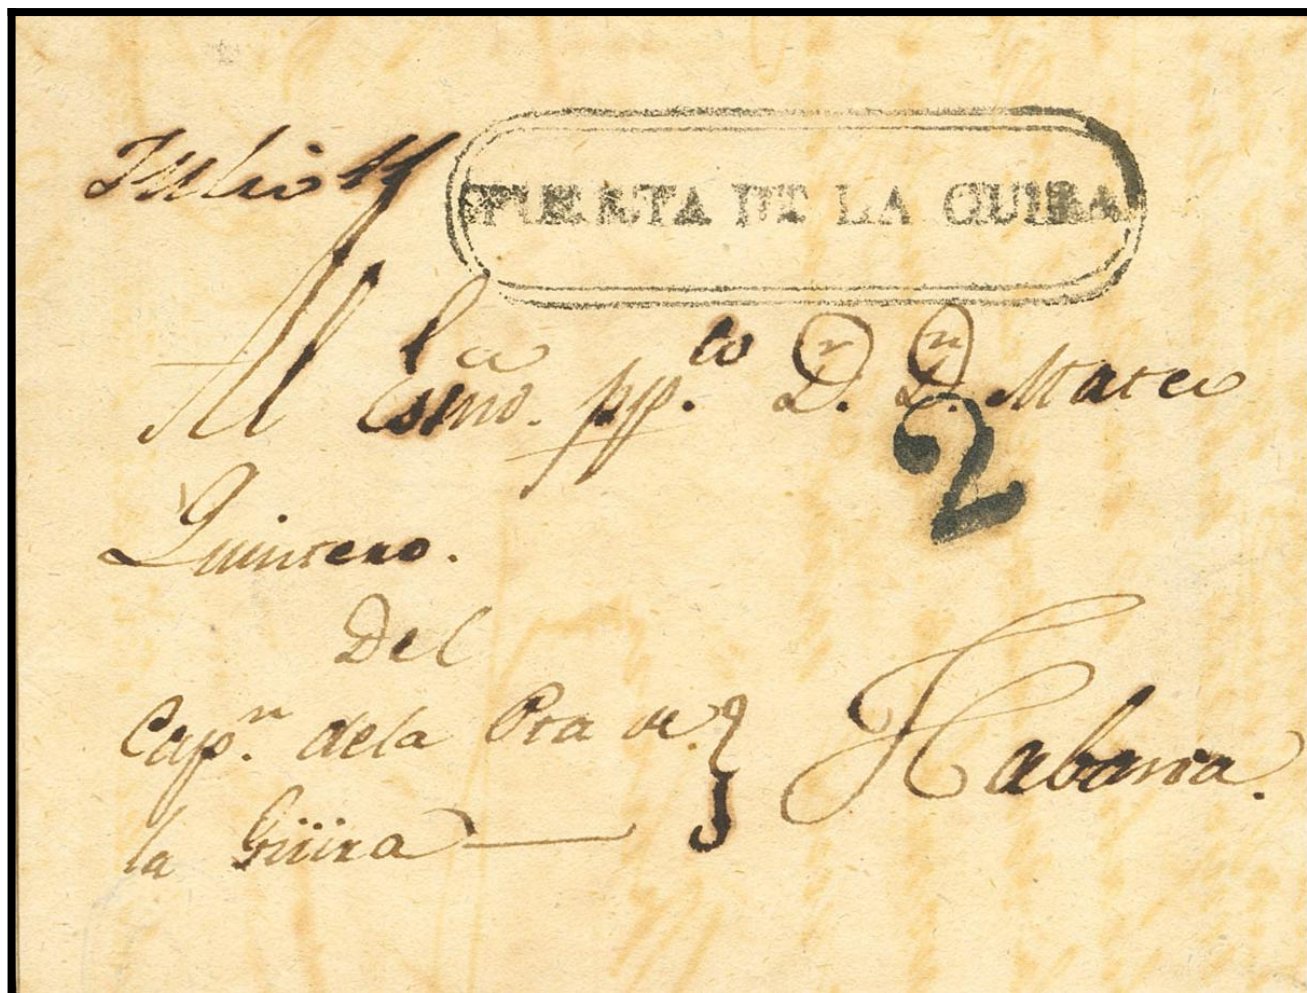 Julio
PUERTA DE LA GUIRA
Al Esmo. pp.to D.r D.n Mateo
2
Quintero.
Del
Cap.n dela Pta de
la Güira
Habana.